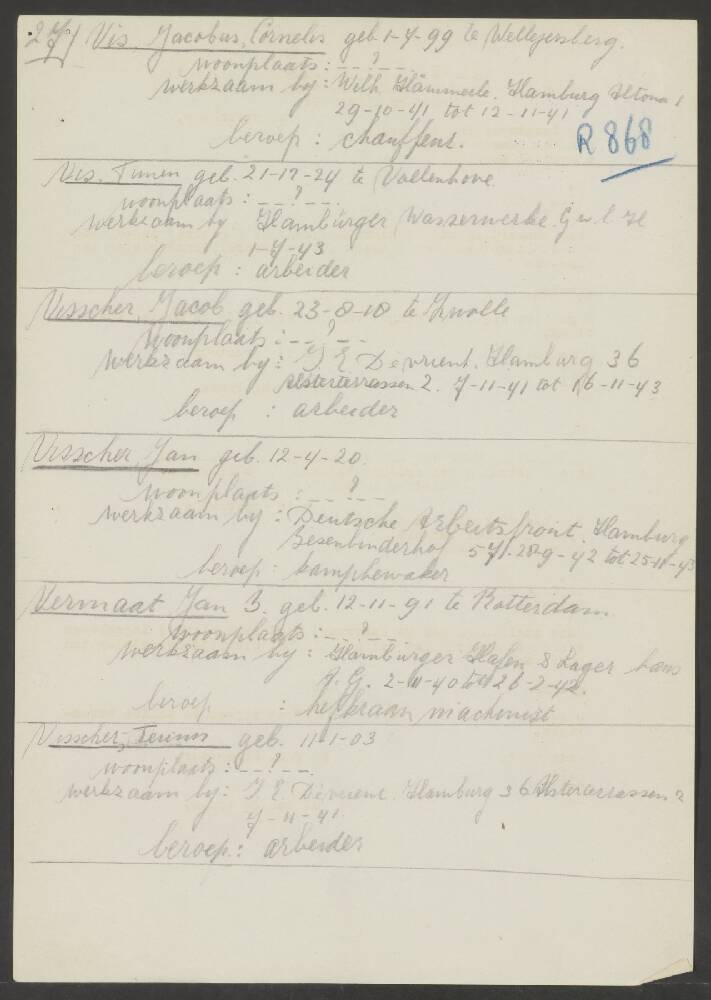 27/ Vis, Jacobus, Cornelis geb 1-7-99 te
woonplaats: _ _ ? _ _
werkzaam by: Wilh. Hämmerle. Hamburg Altona 1
29-10-41 tot 12-11-41
beroep: chauffeur.
R 868
Vis. geb. 21-12-24 te Vollenhove.
woonplaats: _ _ ? _ _.
werkzaam by Hamburger Wasserwerke G.m.b.H
1-7-43
beroep: arbeider
Visscher, Jacob geb. 23-8-18 te Zwolle
woonplaats: _ _ ? _ _
werkzaam by: J. E. Devrient. Hamburg 36
Alsterterrassen 2. 7-11-41 tot 16-11-43
beroep: arbeider
Visscher, Jan geb. 12-4-20.
woonplaats: _ _ ? _ _
werkzaam by: Deutsche Arbeitsfront. Hamburg
Besenbinderhof 57/. 28-9-42 tot 25-11-43
beroep: kampbewaker
Vermaat Jan J. geb. 12-11-91 te Rotterdam
woonplaats: _ _ ? _ _.
werkzaam by: Hamburger Hafen & Lager haus
A. G. 2-11-40 tot 26-2-42.
beroep: hefkraan machinist
Visscher, Teunis geb. 11-1-03
woonplaats: _ _ ? _ _.
werkzaam by: J. E. Devrient. Hamburg 36 Alsterterrassen 2
7-11-41.
beroep: arbeider